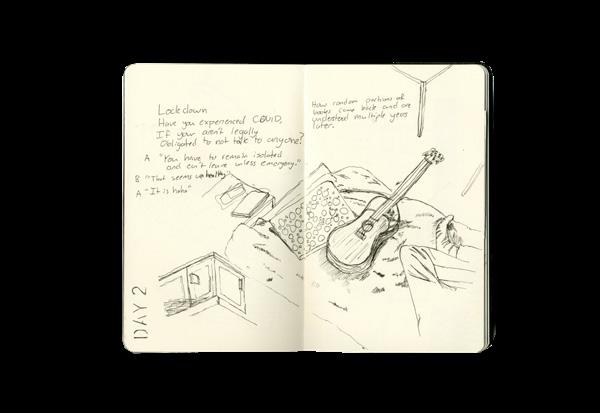 Lockdown
Have you experienced COVID,
If your aren't legally
Obligated to not talk to anyone?
A "You have to remain isolated
and can't leave unless emergency."
B "That seems unhealthy"
A "It is haha"
DAY 2
How random portions of
books come back and are
understood multiple years
later.